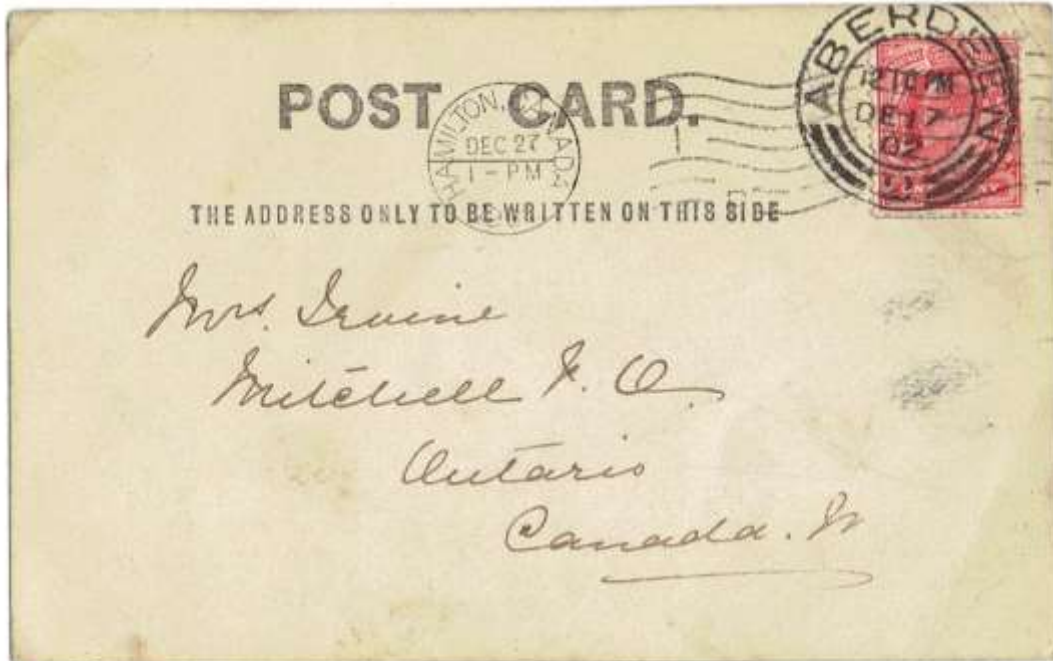 POST CARD.
HAMILTON, CANADA
DEC 27
1 - PM
ABERDEEN
12 10 PM
DE 17
02
THE ADDRESS ONLY TO BE WRITTEN ON THIS SIDE
Mrs. Irvine
Mitchell P. O.
Ontario
Canada.